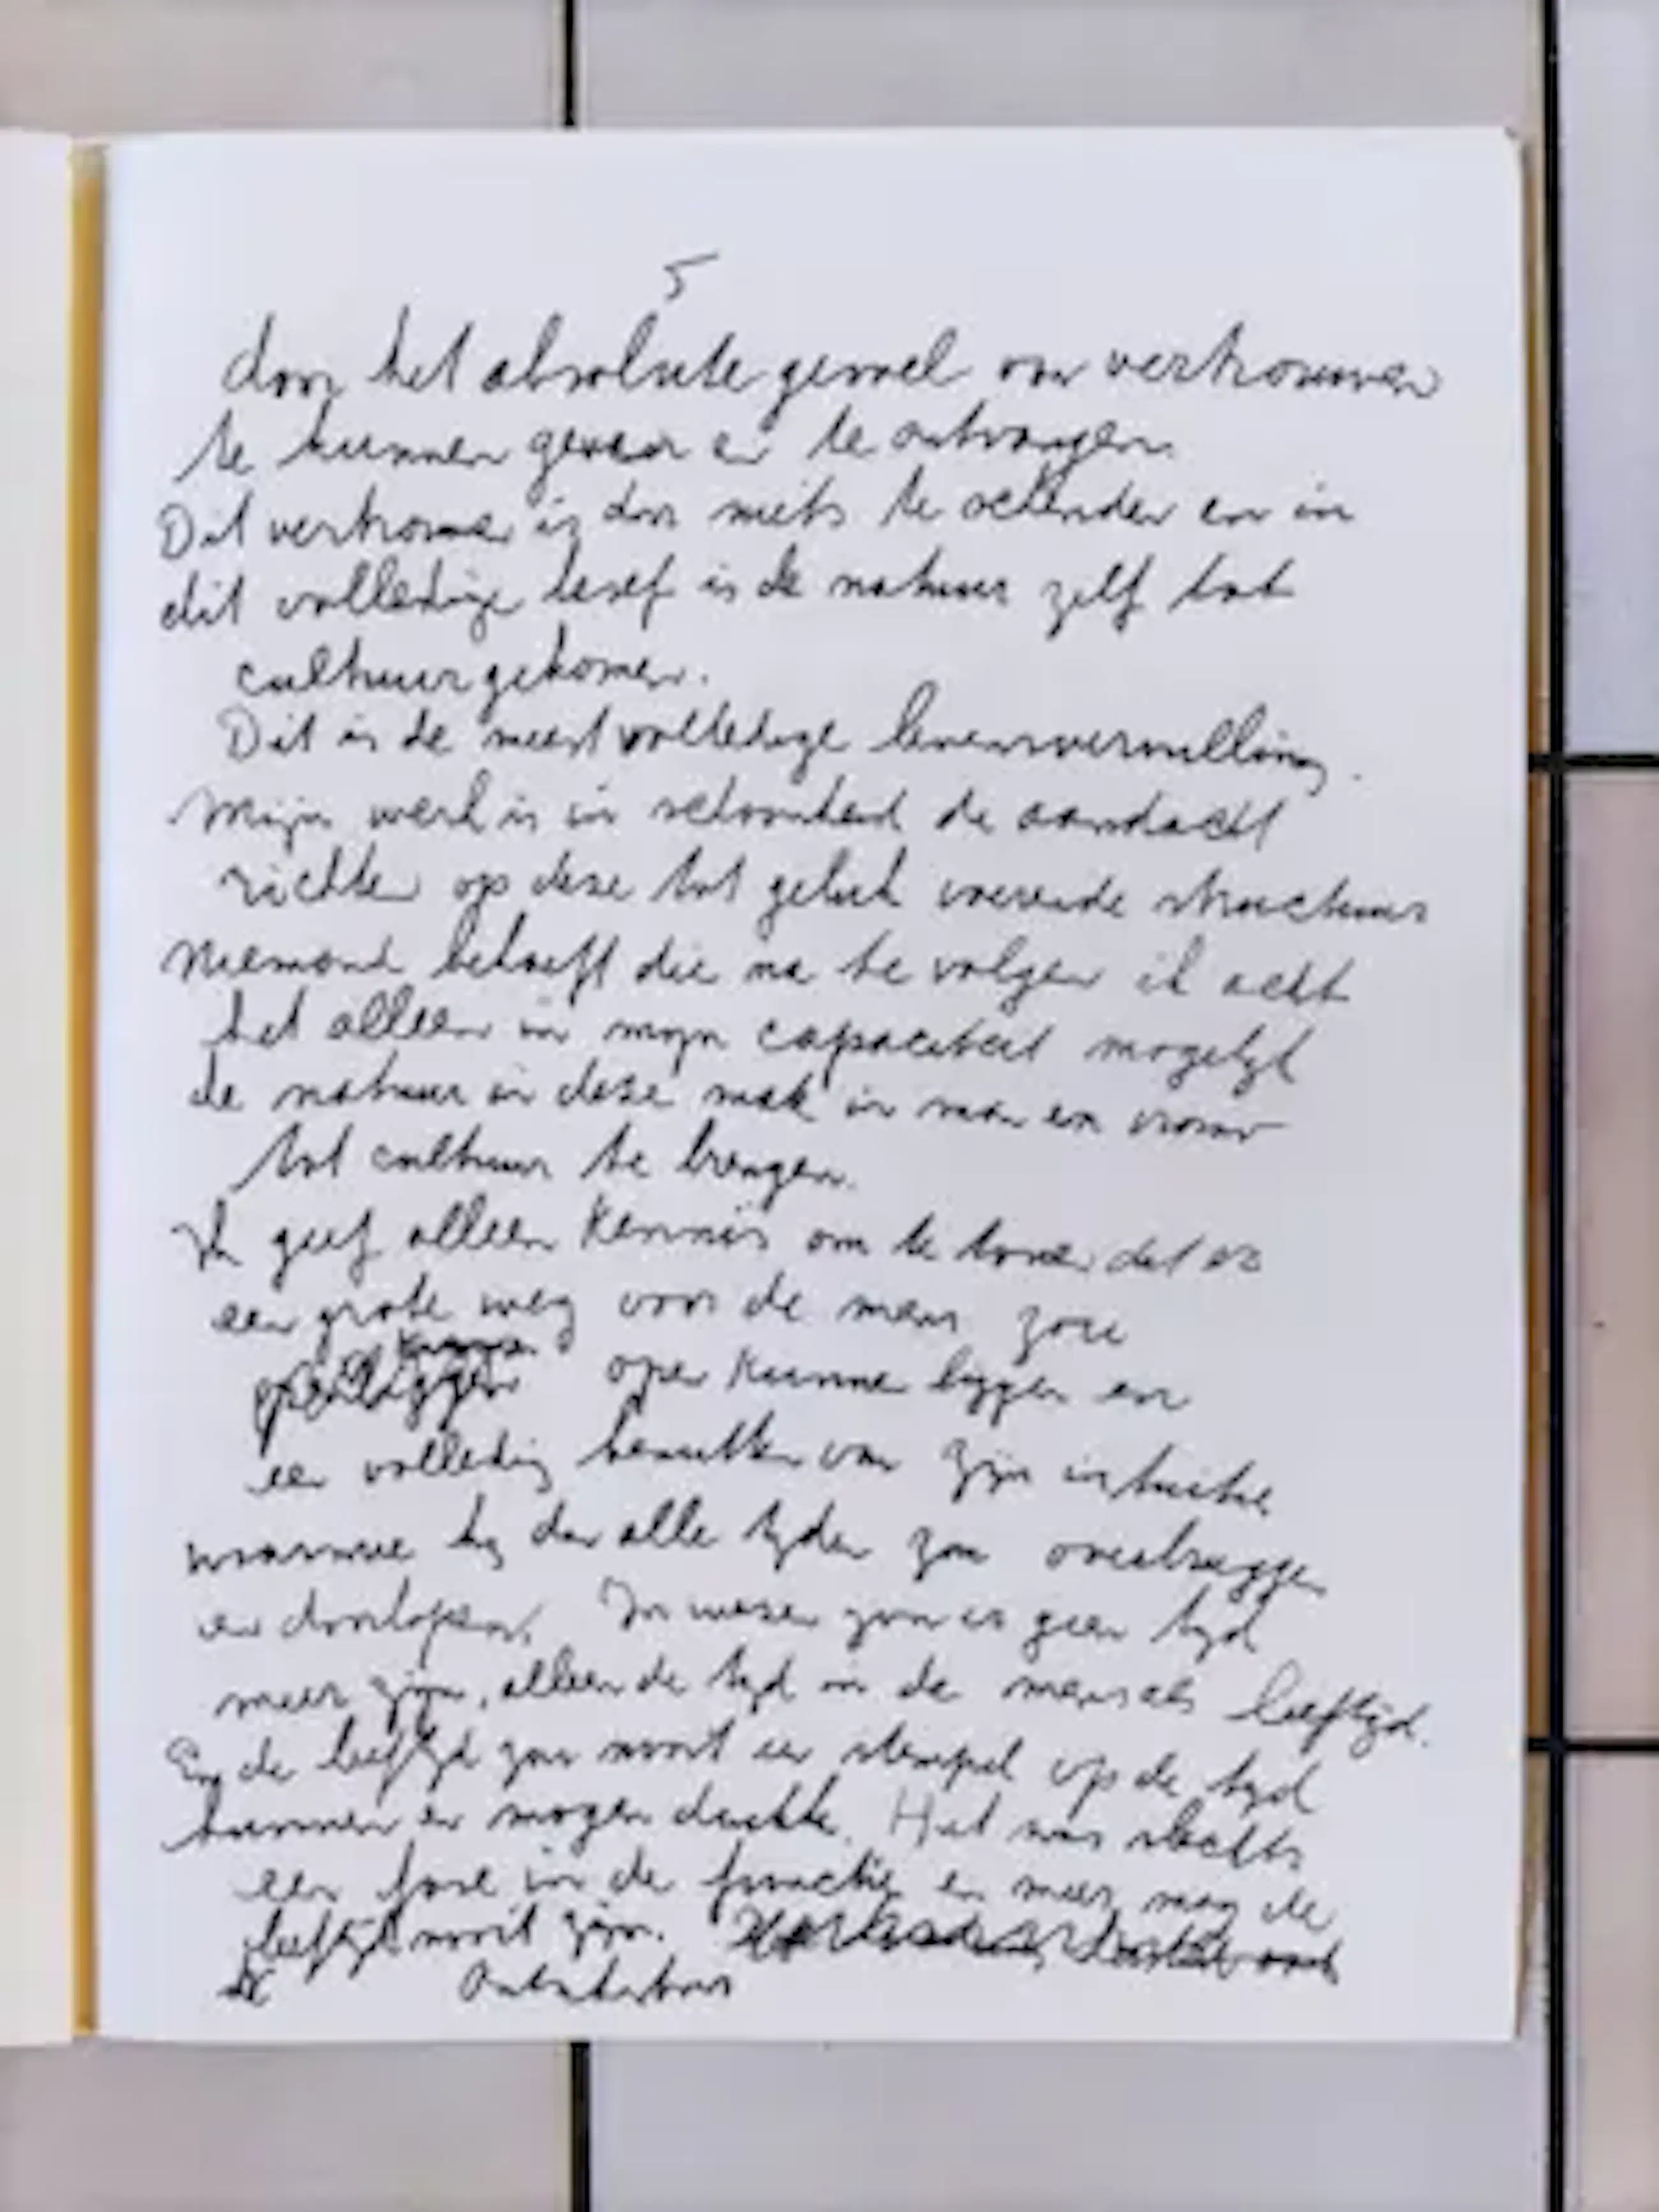 5
door het absolute gevoel om vertrouwen
te kunnen geven en te ontvangen.
Dit vertrouwen is door niets te schenden en in
dit volledige besef is de natuur zelf tot
cultuur gekomen.
Dit is de meest volledige levensvervulling.
Mijn werk is in schoonheid de aandacht
richten op deze tot geluk voerende structuur
Niemand behoeft die na te volgen ik acht
het alleen in mijn capaciteit mogelijk
de natuur in deze mate in man en vrouw
tot cultuur te brengen.
Ik geef alleen kennis om te tonen dat er
een grote weg voor de mens zou
open kunnen liggen en
een volledig benutten van zijn intuitie
waarmee hij dan alle tijden zou overbruggen
en doorlopen. In wezen zou er geen tijd
meer zijn, alleen de tijd in de mens als leeftijd.
En de leeftijd zou nooit een stempel op de tijd
kunnen en mogen drukken. Het was slechts
een fase in de functie en meer mag de
leeftijd nooit zijn.